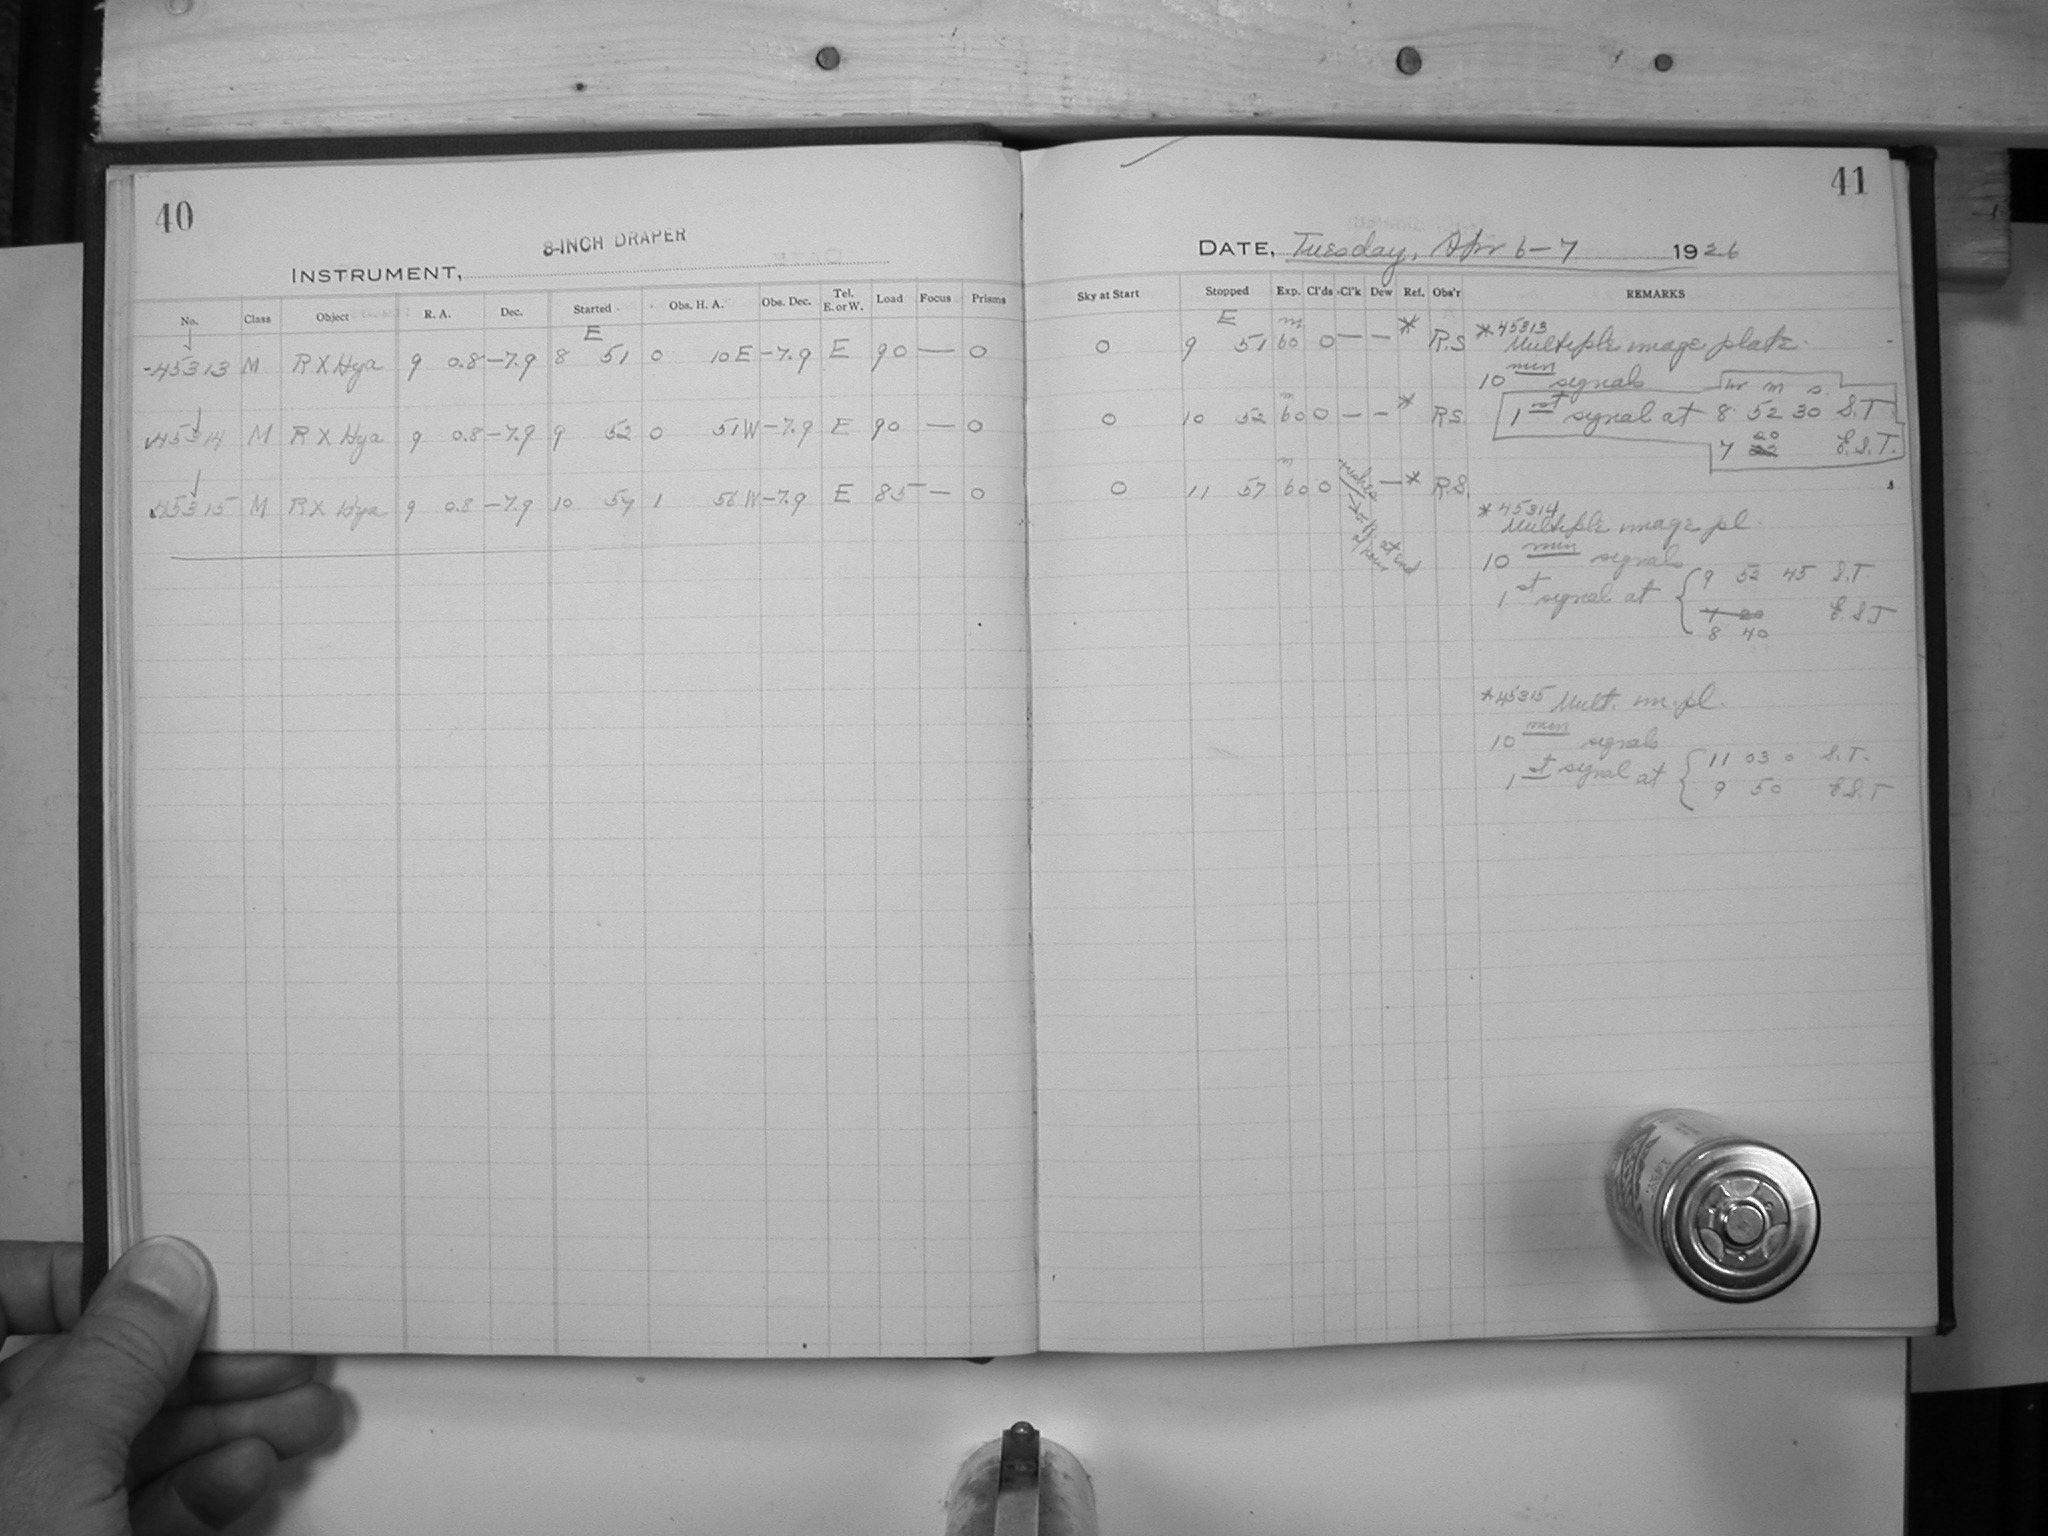 40
8-INCH DRAPER
INSTRUMENT,
No. Class Object R. A. Dec. Started Obs. H. A. Obs. Dec. Tel. E. or W. Load Focus Prisms
E
45313 M RX Hya 9 0.8 -7.9 8 51 0 10 E -7.9 E 90 — 0
45314 M RX Hya 9 0.8 -7.9 9 52 0 51 W -7.9 E 90 — 0
45315 M RX Hya 9 0.8 -7.9 10 57 1 56 W -7.9 E 85 — 0
41
DATE, Tuesday, Apr 6-7 1926
Sky at Start Stopped Exp. Cl'ds Cl'k Dew Ref. Obs'r REMARKS
E m
0 9 51 60 0 — — * R.S
m
0 10 52 60 0 — — * R.S.
m
0 11 57 60 0 — * R.S.
at end
hour
* 45313
Multiple image plate.
10 min signals
hr m s.
1st signal at 8 52 30 S.T.
7 20 E.S.T.
* 45314
Multiple image pl.
10 min signals
1st signal at 9 52 45 S.T.
7 20 E.S.T
8 40
* 45315 Mult. im. pl.
10 min signals
1st signal at 11 03 0 S.T.
9 50 E.S.T